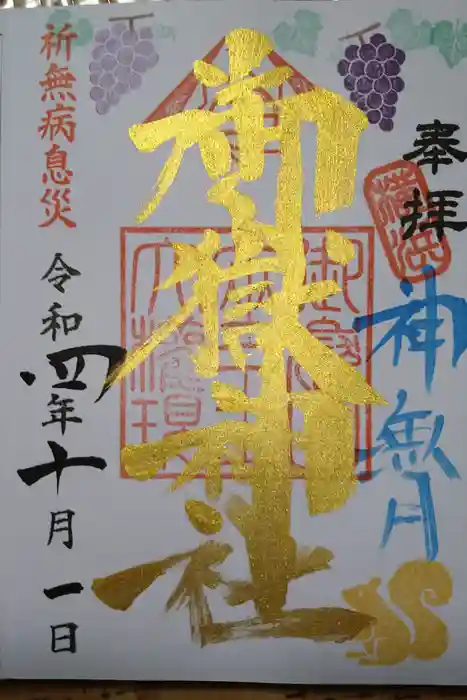 奉拝
神無月
御嶽神社
祈無病息災
令和四年十月一日